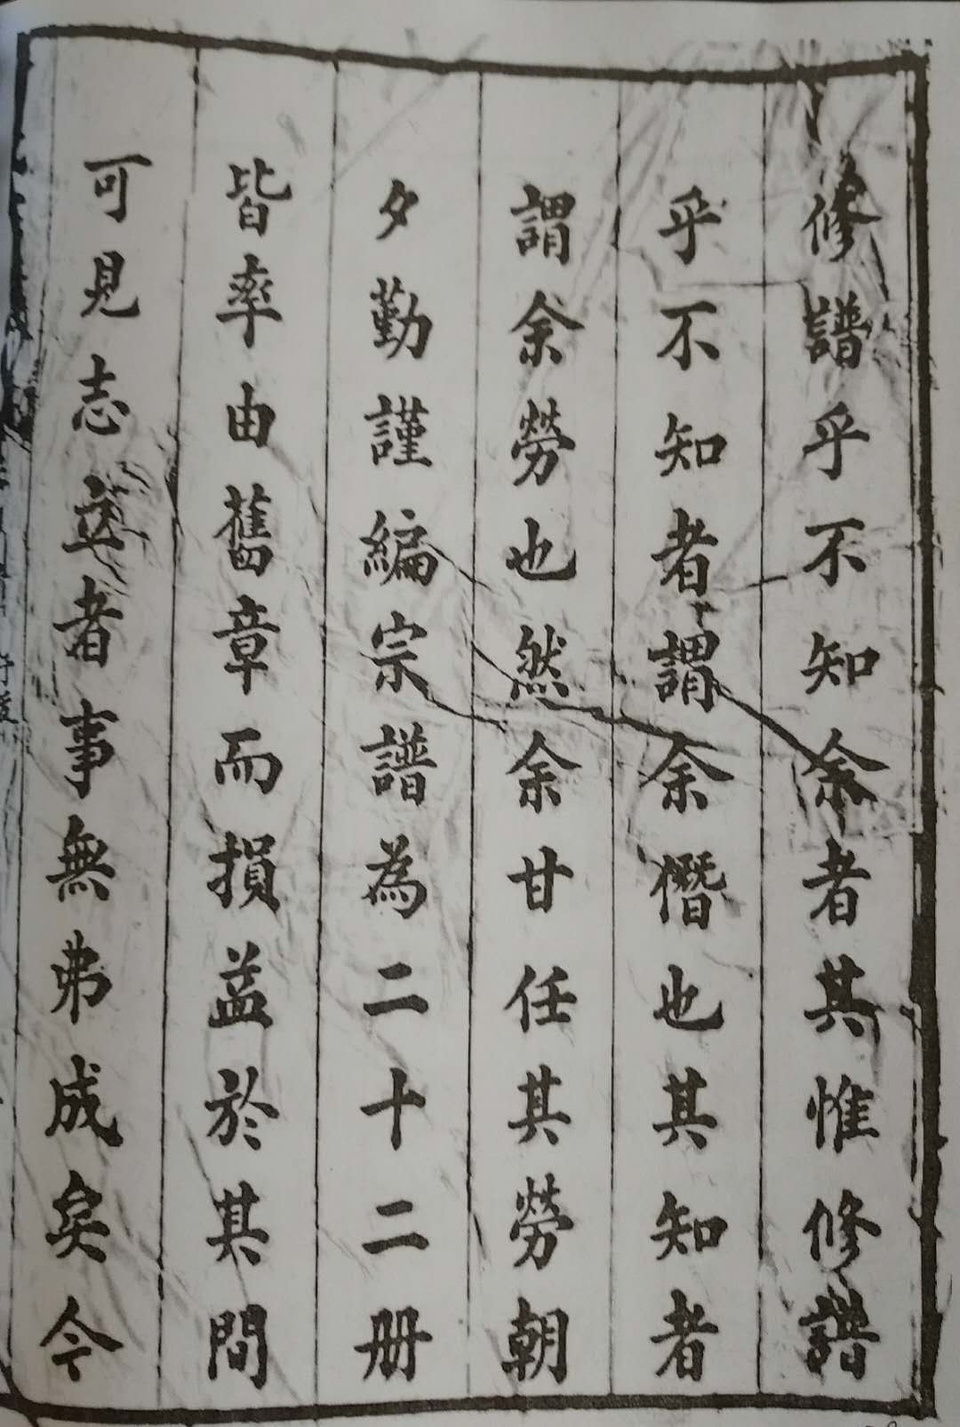 修譜乎不知余者其惟修譜
乎不知者謂余僭也其知者
謂余勞也然余甘任其勞朝
夕勤謹編宗譜為二十二册
皆率由舊章而損益於其間
可見志立者事無弗成矣今